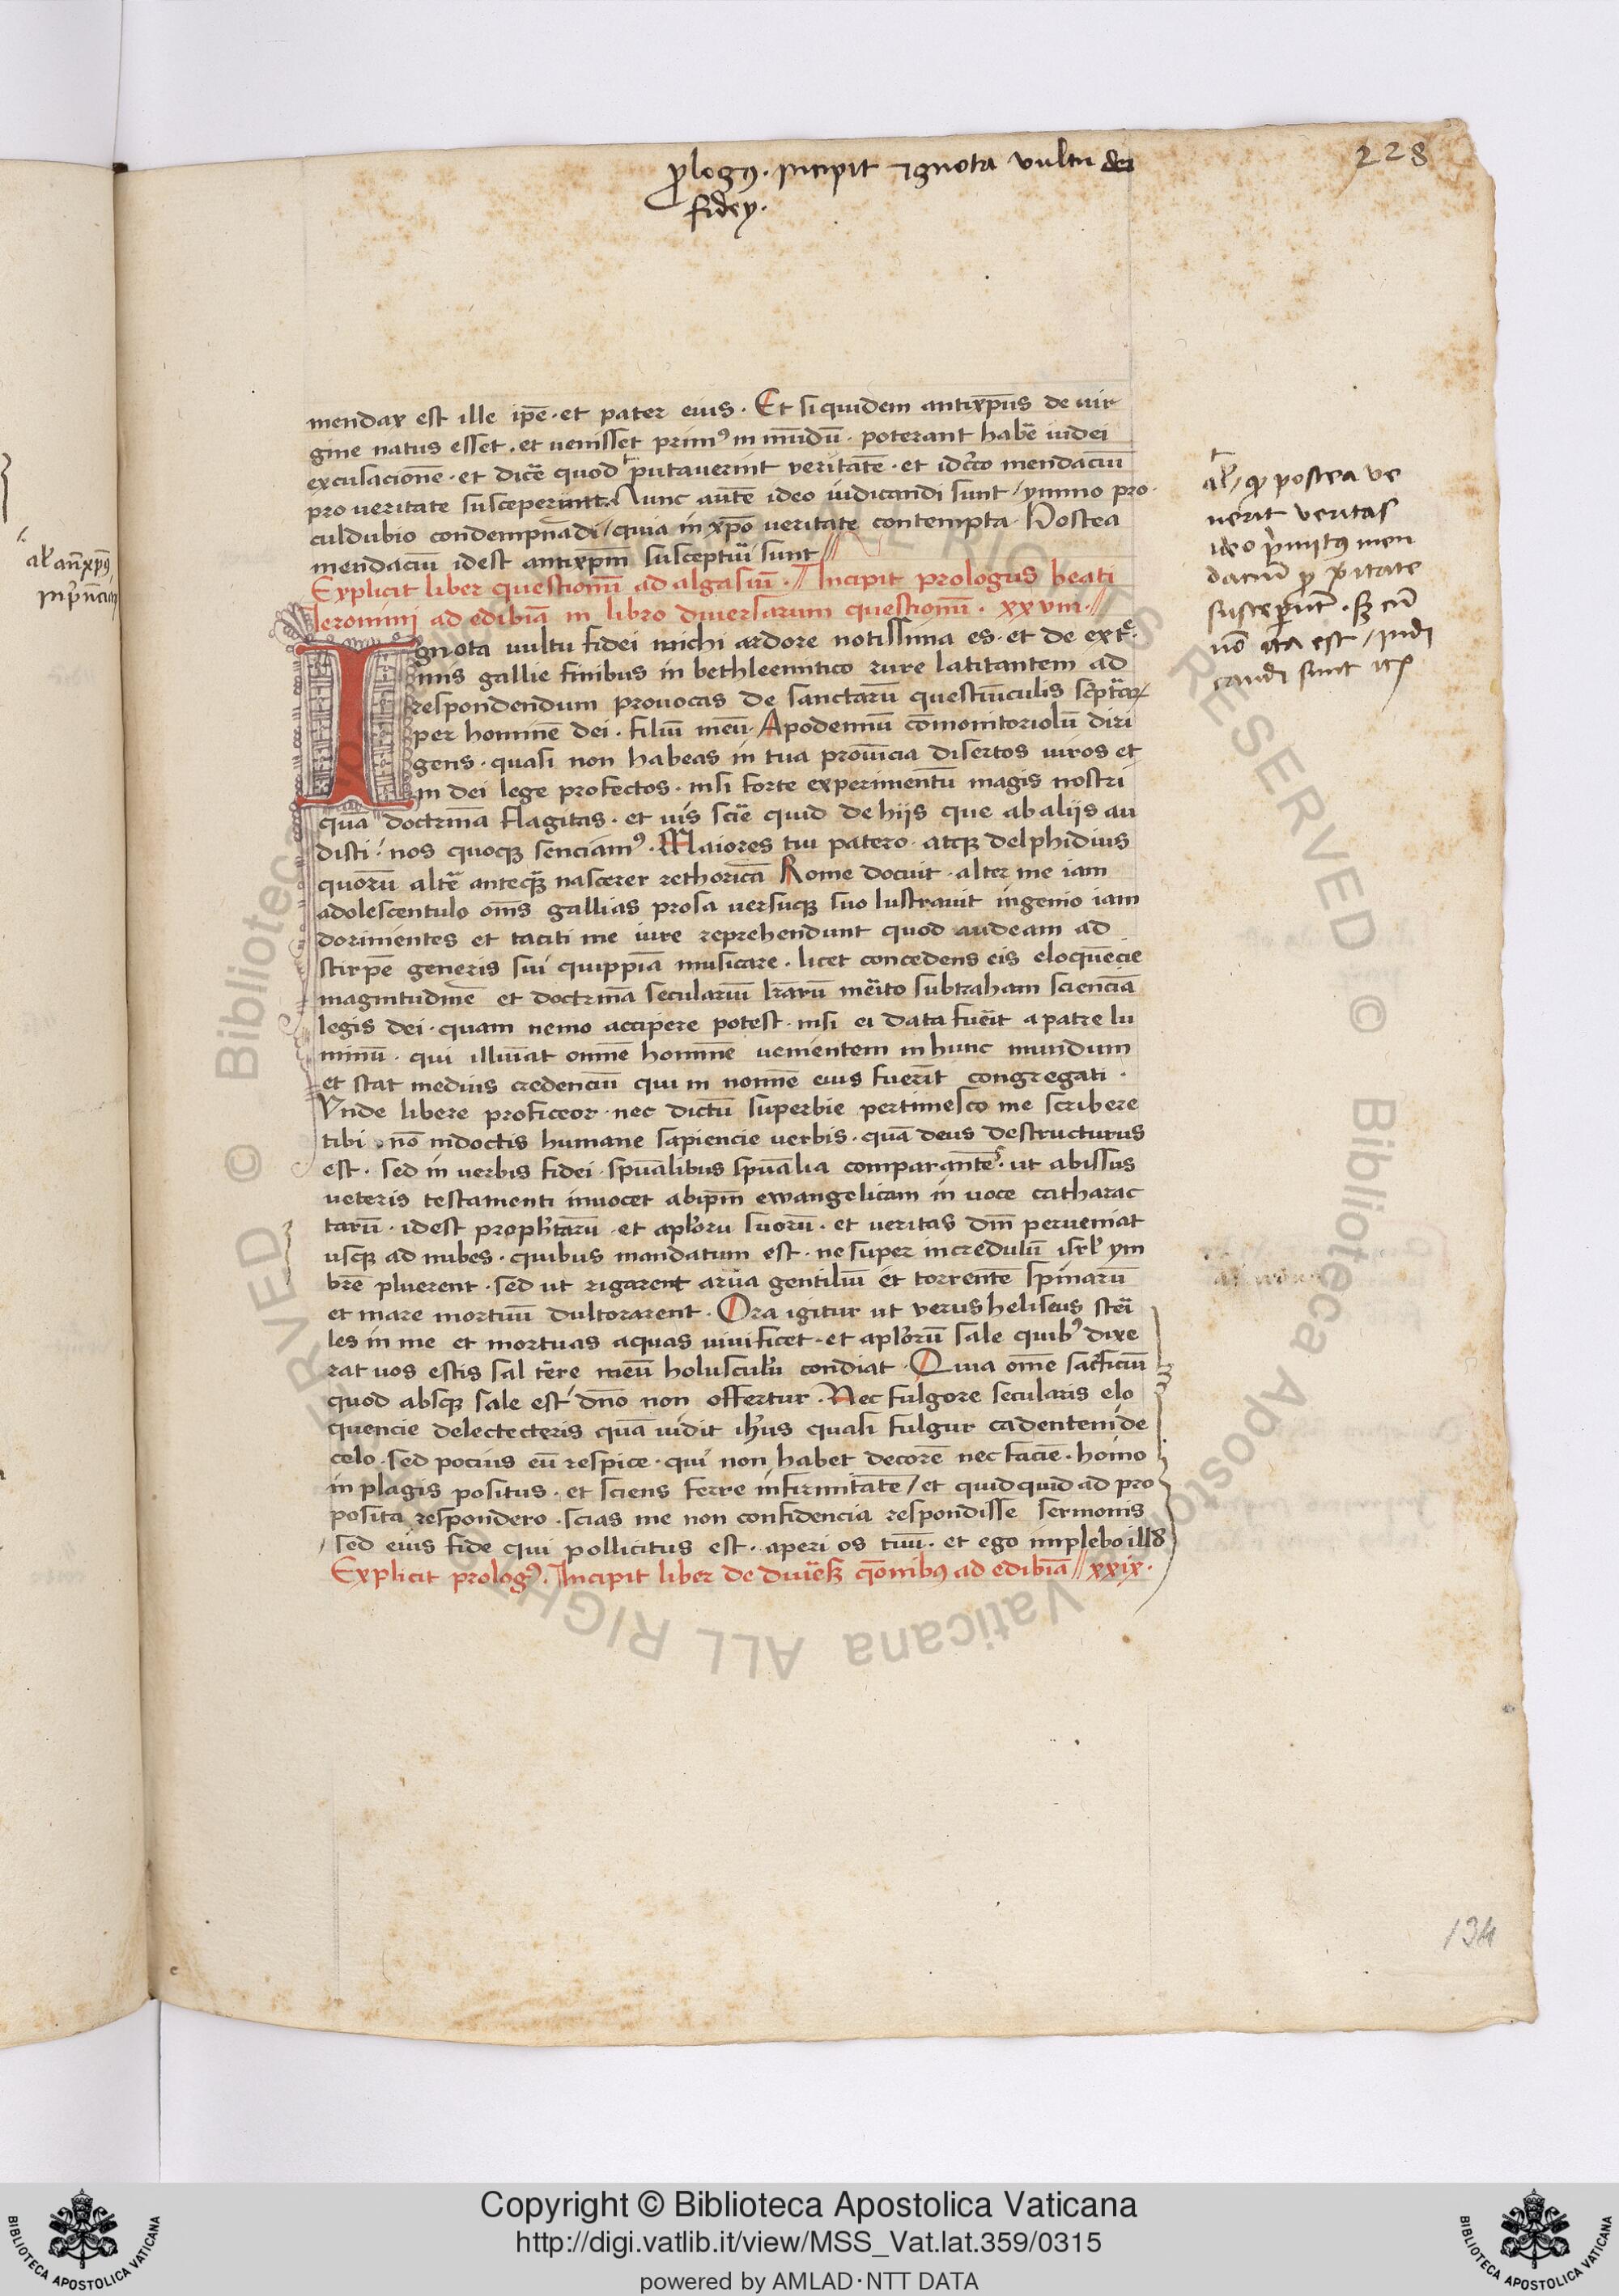 ꝓlogꝰ. incipit ignota vultu dei
fidey.
228
mendax est ille ip̄e · et pater eius · Et siquidem antixp̄us de uir
gine natus esset · et uenisset primꝰ in mūdū · poterant habē iudei
exculacionē · et dicē quod putauerint veritatē · et idcĉo mendaciū
pro ueritate susceperint. Nunc autē ideo iudicandi sunt / ymmo pro
culdubio condempnādi / quia in xp̄o veritate contempta · Postea
mendaciū idest antixp̄m susceptūi sunt //
Explicit liber questionū ad algasiū · // Incipit prologus beati
Ieronimi ad edibiā in libro diuersarum questionū · xxviii · //
Ignota uultu fidei michi ardore notissima es · et de extre
mis gallie finibus in bethleemitico rure latitantem ad
respondendum prouocas de sanctarū questiūculis sc̄ptar̄
per hominē dei · filiū meū · Apodemiū cōmonitoriolū diri
gens · quasi non habeas in tua prouīcia disertos uiros et
in dei lege profectos · nisi forte experimentū magis nostri
quā doctrinā flagitas · et uis scīe quid de hijs que ab alijs au
disti · nos quoqꝫ senciamꝰ · Maiores tui patero · atqꝫ delphidius
quorū altē anteqꝫ nascerer rethoricā Rome docuit · alter me iam
adolescentulo om̄s gallias prosa uersuqꝫ suo lustrauit ingenio iam
dormientes et taciti me iure reprehendunt quod audeam ad
stirpē generis sui quippiā musicare · licet concedens eis eloquēcie
magnitudinē et doctrinā seculariū lr̄arū mēito subtraham sciencīa
legis dei · quam nemo accipere potest · nisi ei data fuēit a patre lu
minū · qui illuīat omnē hominē uenientem in hunc mundum
et stat medius credenciū qui in nomīe eius fuerīt congregati ·
Vnde libere proficeor · nec dictū superbie pertimesco me scribere
tibi · nō indoctis humane sapiencie uerbis · quā deus destructurus
est · sed in uerbis fidei · spūalibus spūalia comparante · ut abissus
ueteris testamenti inuocet abip̄m ewangelicam in uoce catharac
tarū · idest proph̄tarū · et apl̄oru suorū · et veritas dn̄i perueniat
usqꝫ ad nubes · quibus mandatum est · ne super incredulū isrl̄ ym
brē pluerent · sed ut rigarent arua gentiliū et torrentē spinarū
et mare mortuū dultorarent · Ora igitur ut verus heliseus stēi
les in me et mortuas aquas uiuificet · et apl̄orū sale quibꝰ dixe
rat uos estis sal tēre meū holusculū condiat · Quia om̄e sac̄ficiū
quod absqꝫ sale est dn̄o non offertur · Nec fulgore secularis elo
quencie delectecteris quā uidit ih̄us quasi fulgur cadentem de
celo · sed pocius eū respice · qui non habet decorē nec faciē · homo
in plagis positus · et sciens ferre infirmitātē / et quidquid ad pro
posita respondero · scias me non confidencia respondisse sermonis
sed eius fide qui pollicitus est · aperi os tuū · et ego implebo illð
Explicit prologꝰ · Incipit liber de diuēsꝫ q̄onibꝰ ad edibiā // xxix ·
al̄ / ꝙ postea ve
nerit veritas
ideo p̄mitꝰ men
daciū ꝓ v̄itate
susceperūt · sꝫ cū
nō ita est / iudi
candi sunt
134
al̄ an̄xp̄ꝰ
Copyright © Biblioteca Apostolica Vaticana
http://digi.vatlib.it/view/MSS_Vat.lat.359/0315
powered by AMLAD·NTT DATA
BIBLIOTECA APOSTOLICA VATICANA
BIBLIOTECA APOSTOLICA VATICANA